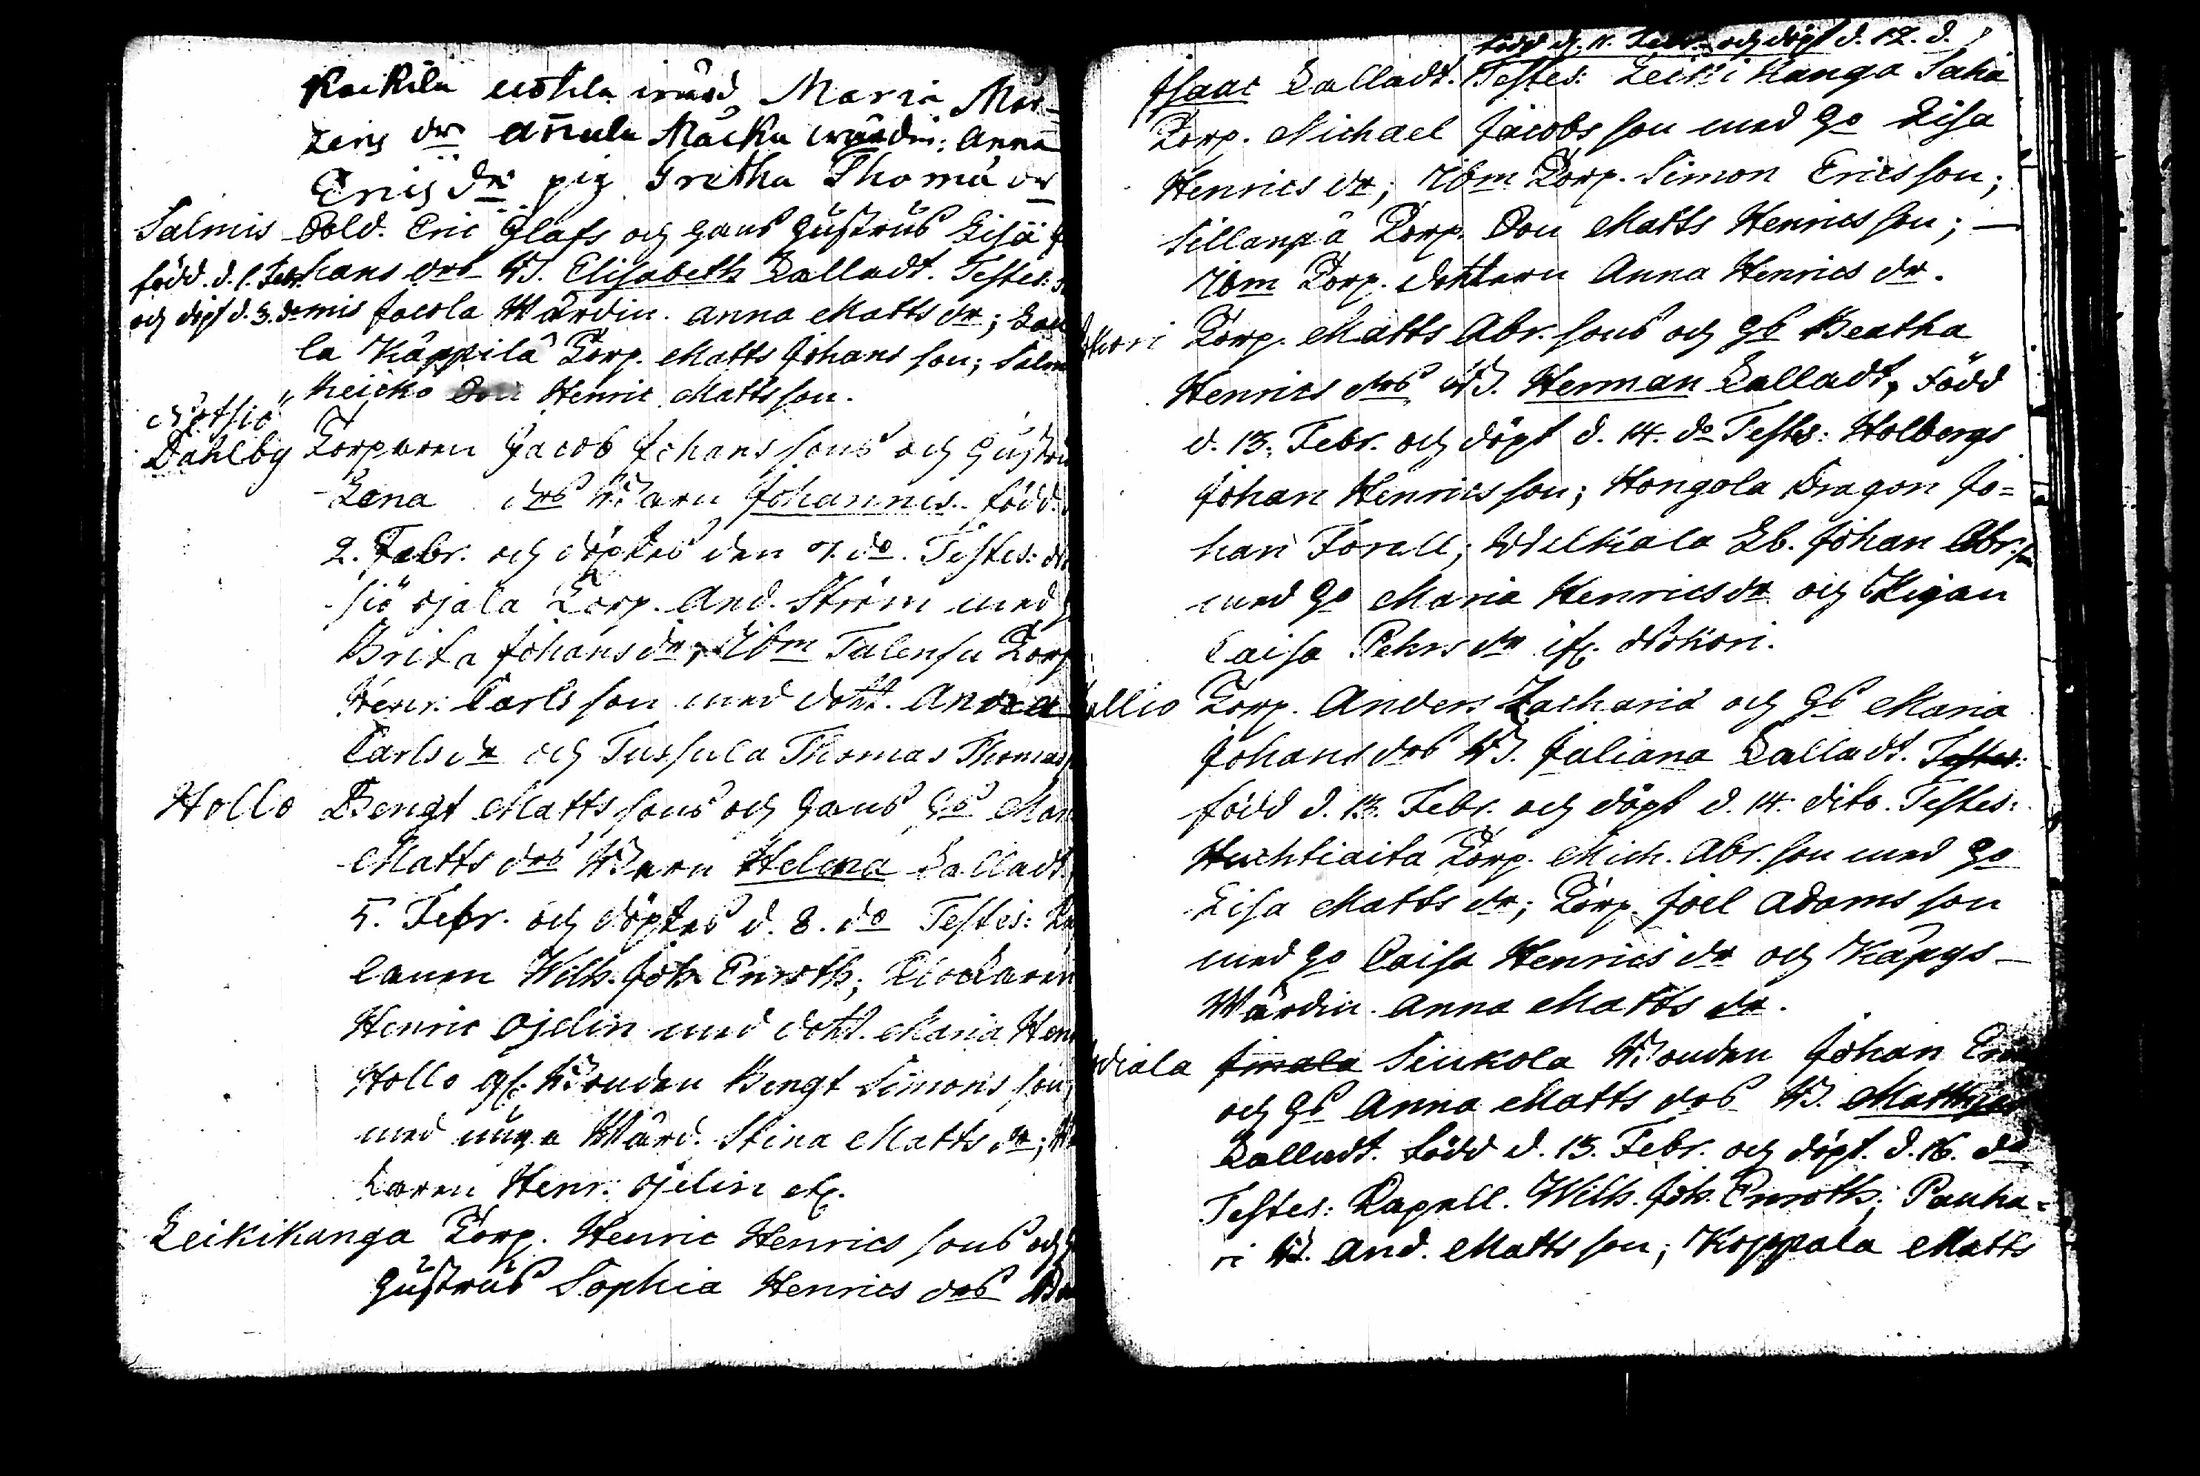 Kackila uotila wärd. Maria Mår=
tens dr Annula Mäcku wärdin: Anna
Erics dr pig Gretha Thomä dr
Salmis Sold. Eric Olofs och hans hustrus Lisä
född. d. 1. Febr. hans drs B. Elisabeth kalladt. Testes:
och döpt d. 3. do mis Jacola Wärdin. Anna Matts dr;
la Käppilä Torp. Matts Johans son; Salm
heicko Henric Mattsson.
Nötsiö
Dahlby Torparen Jacob Johans sons och hustru
Lena drs Barn Johannes. född.
2. Febr. och döptes den 7. do. Testes:
siö ojala Torp. And. Ström med
Brita Johans dr; Ibm Talensu Torp
Henr. Carls son med dott. Anna
Carls dr och Tussula Thomas Thomas
Hollo Bengt Matts sons och hans hs Mar
Matts drs Barn Helena kalladt
5. Febr. och döptes d. 8. do Testes:
lanen Wilh. Joh. Enroth; Klockaren
Henric Ojelin med dott. Maria Hen
Hollo gl. Bonden Bengt Simons son,
med unga Wärd. Stina Matts dr;
karen Henr. Ojelin etc.
Leikikanga Torp. Henric Henrics sons och
hustrus Sophia Henrics drs
född d. 11. Febr. och döpt d. 12. d.
Isaac kalladt. Testes: Leikikanga Saha
Torp. Michael Jacobs son med ho Lisa
Henrics dr; Ibm Torp. Simon Erics son;
Sillanpä Torp. Son Matts Henrics son;
Ibm Torp. dottern Anna Henrics dr.
Torp. Matts Abr. sons och hs Beatha
Henrics drs B. Herman kalladt, född
d. 13. Febr. och döpt d. 14. do Testes: Holbergs
Johan Henrics son; Hongola Dragon Jo=
han Forell; Wellkala Lb. Johan Abr. son
med ho Maria Henrics dr och Pigan
Caisa Pehrs dr ifr. Nokori.
allio Torp. Anders Zachariä och hs Maria
Johans drs B. Juliana kalladt. Testes:
född d. 13. Febr. och döpt d. 14. dito. Testes:
Huchtiaita Torp. Mich. Abr. son med ho
Lisa Matts dr; Torp. Joel Adams son
med ho Caisa Henrics dr och Käpys
Wärdin. Anna Matts dr.
diala Sinkola Bonden Johan
och hs Anna Matts drs B. Matthias
kalladt. född d. 13. Febr. och döpt. d. 16. do
Testes: Kapell. Wilh. Joh. Enroth; Panha=
ri B. And. Matts son; Koppala Matts